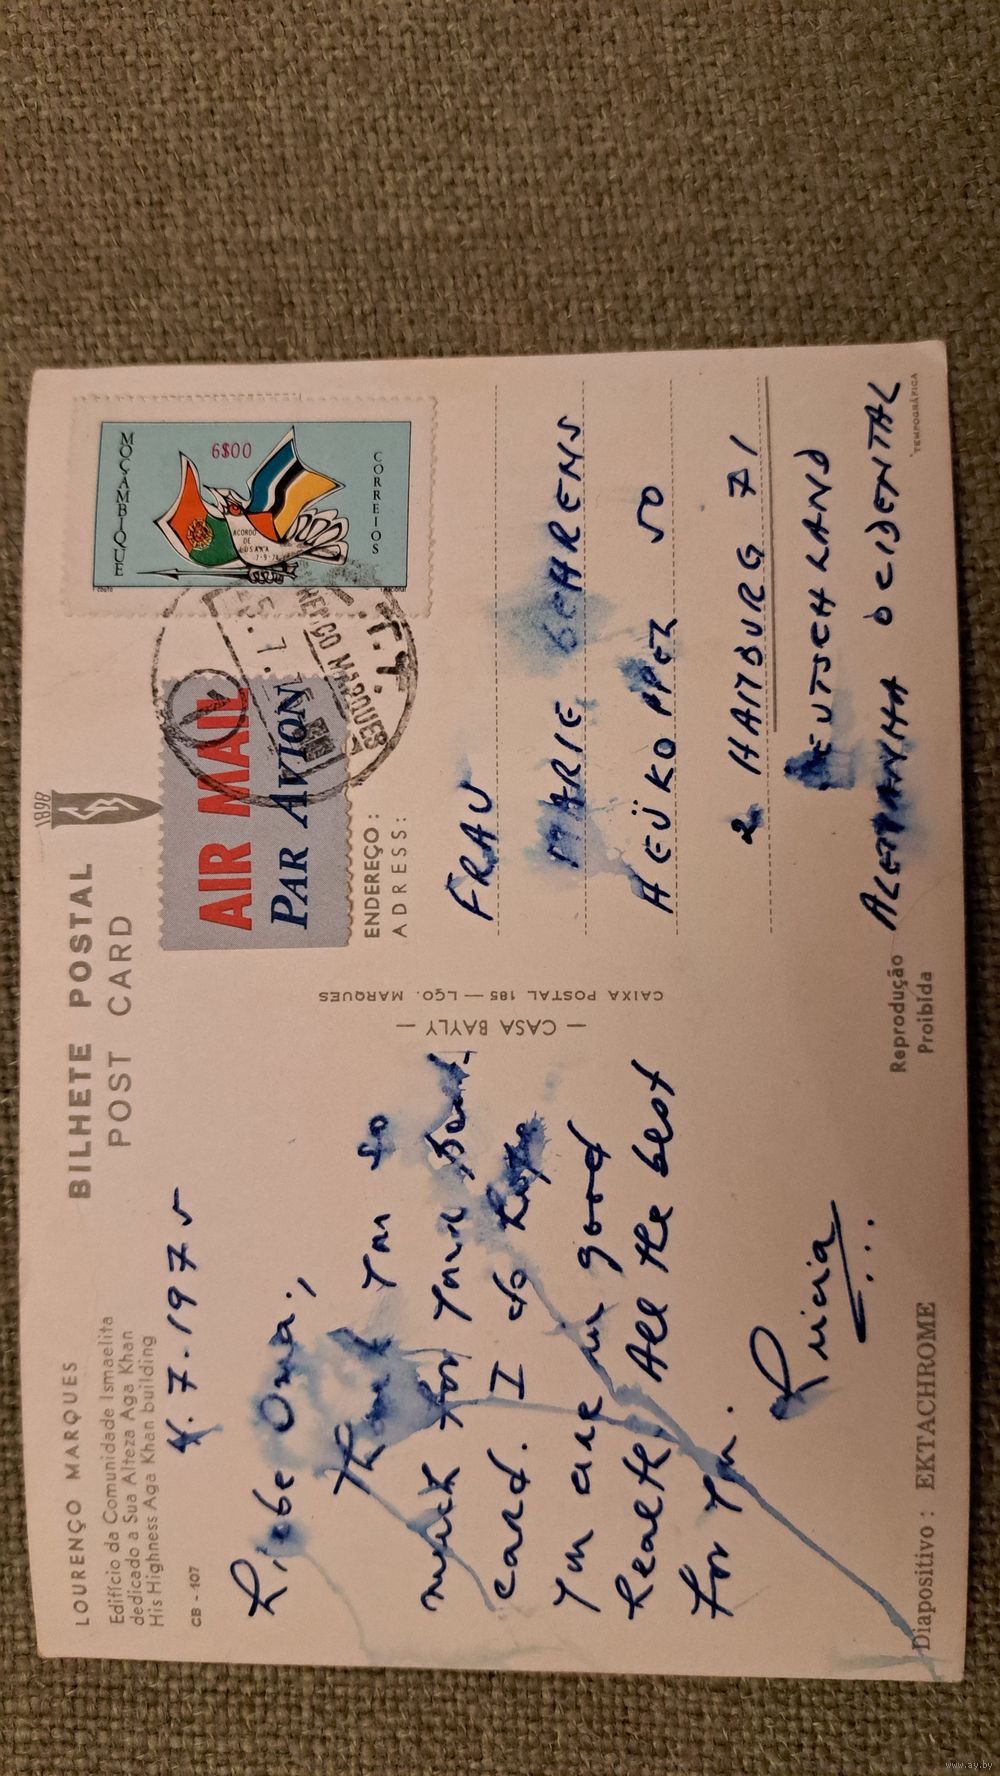 LOURENÇO MARQUES
Edifício da Comunidade Ismaelita
dedicado a Sua Alteza Aga Khan
His Highness Aga Khan building
CB - 107
BILHETE POSTAL
POST CARD
1898
4.7.1975
Liebe Oma,
Thank you so
much for your
card. I do hope
you are in good
health. All the best
for you.
Diapositivo : EKTACHROME
Reprodução
Proibida
— CASA BAYLY —
CAIXA POSTAL 185 — LÇO. MARQUES
AIR MAIL
PAR AVION
MOÇAMBIQUE
6$00
ACORDO
DE
LUSAKA
7-9-74
CORREIOS
MARQUES
ENDEREÇO:
ADRESS:
FRAU
MARIE BEHRENS
HEÜKOPPEL 50
2 HAMBURG 71
DEUTSCHLAND
ALEMANHA OCIDENTAL
TEMPOGRÁFICA
www.ay.by